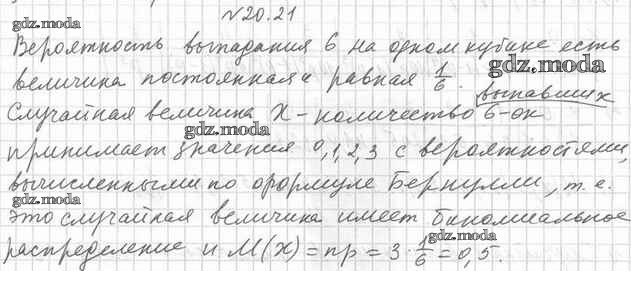 №20.21
gdz.moda
Вероятность выпадания 6 на одном кубике есть
величина постоянная и равная 1/6. gdz.moda
выпавших
Случайная величина X - количество 6-ок
gdz.moda
принимает значения 0,1,2,3 с вероятностями,
вычисленными по формуле Бернулли, т.е.
gdz.moda
это случайная величина имеет биномиальное
gdz.moda
распределение и M(X) = np = 3 · 1/6 = 0,5.